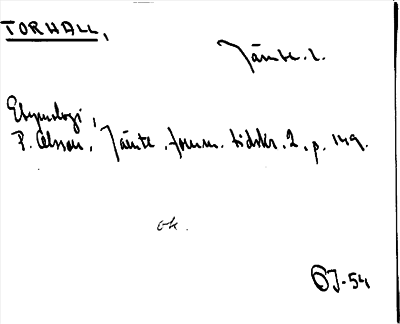 TORHALL,
Jämtl.
Etymologi,
P. Olsson, Jämtl. fornm. tidskr. 2, p. 149.
ok.
ÖJ-54